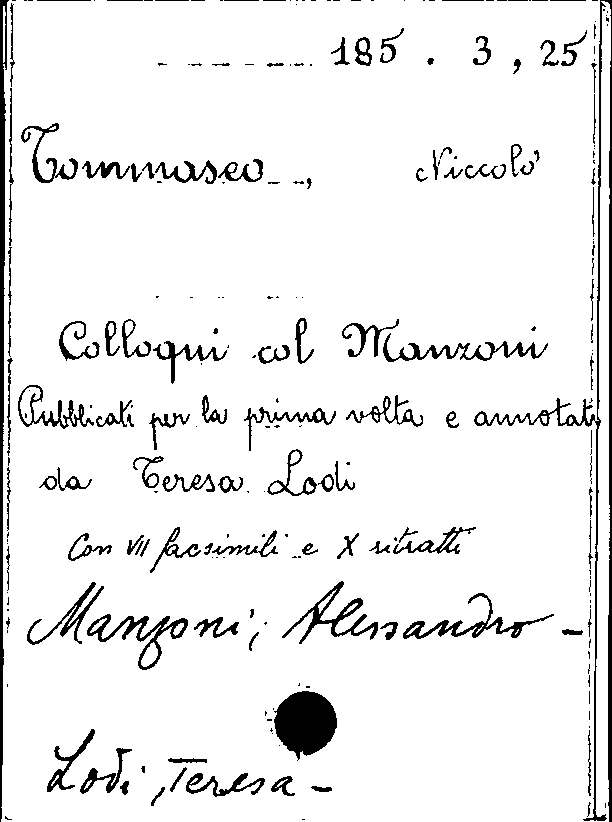 185 . 3 , 25
Tommaseo , Niccolò
Colloqui col Manzoni
Pubblicati per la prima volta e annotati
da Teresa Lodi
Con VII facsimili e X ritratti
Manzoni, Alessandro -
Lodi, Teresa -